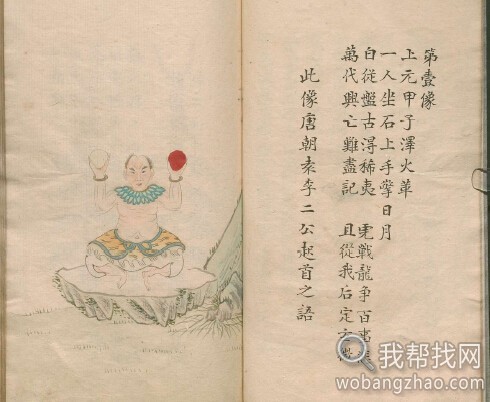 第壹像
上元甲子澤火革
一人坐石上手擎日月
自從盤古淂稀夷 虎戰龍争百事
萬代興亡難盡記 且從我后定
此像唐朝袁李二公起首之語
我帮找网
wobangzhao.com